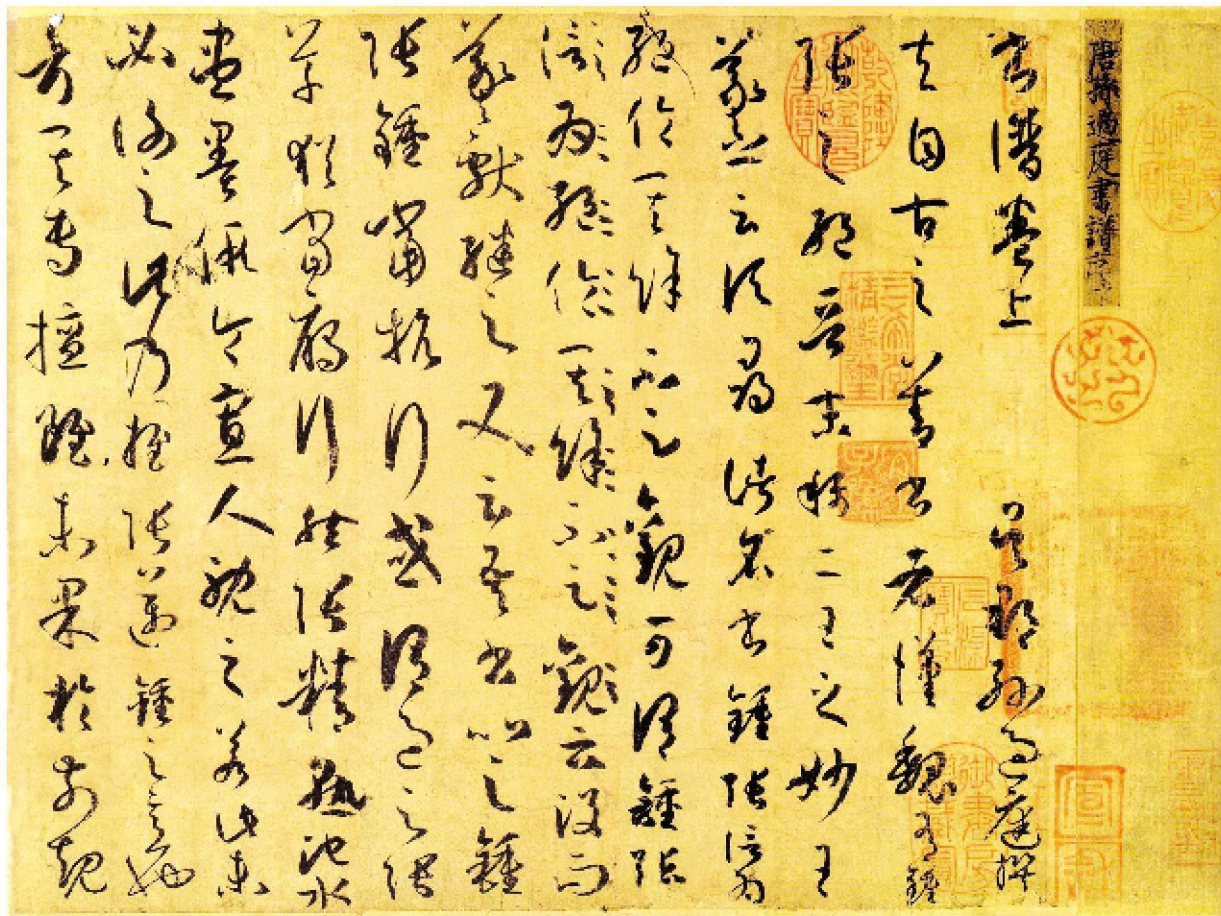 唐孫過庭書譜序
書譜卷上 吳郡孫過庭撰
夫自古之善書者漢魏有鍾
張之絕晉末稱二王之妙王
羲之云頃尋諸名書鍾張信為
絕倫其餘不足觀可謂鍾張
信為絕倫其餘不足觀云沒而
羲獻繼之又云吾書比之鍾
張鍾當抗行或謂過之張
草猶當鴈行然張精熟池水
盡墨假令寡人耽之若此未
必謝之此乃推張邁鍾之意也
考其專擅雖未果於前規
三希堂精鑑璽
宜子孫
宣和